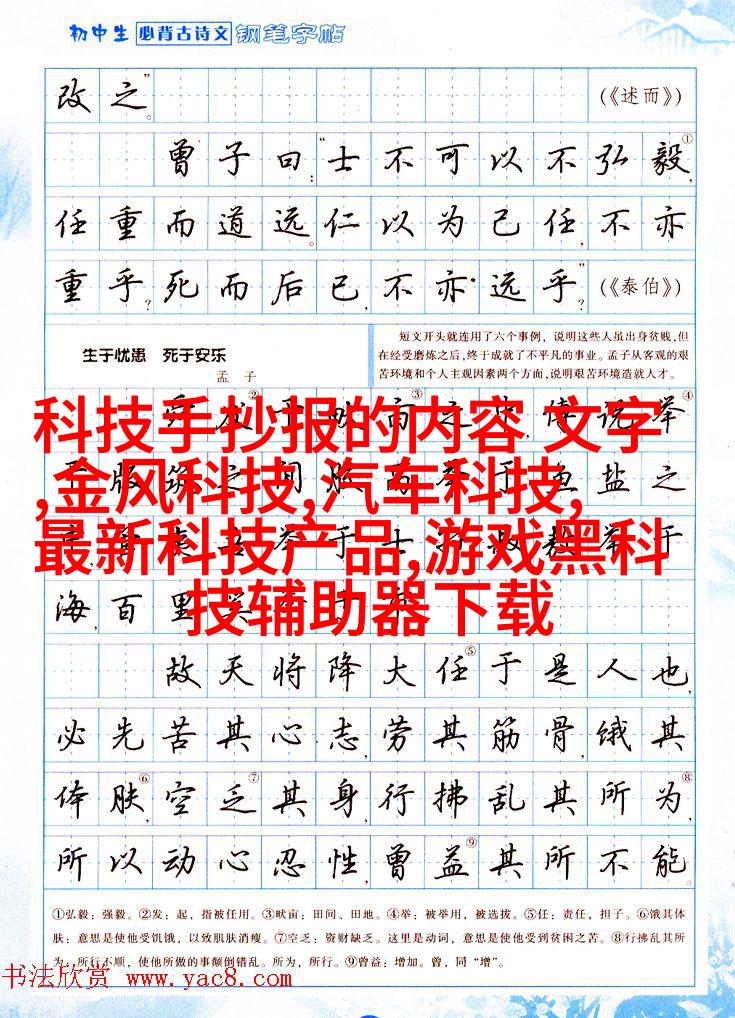 初中生 必背古诗文 钢笔字帖
改之。” (《述而》)
曾子曰:“士不可以不弘①毅,
任重而道远。仁以为己任,不亦
重乎?死而后已,不亦远乎?” (《泰伯》)
生于忧患 死于安乐
孟子
短文开头就连用了六个事例，说明这些人虽出身贫贱,但
在经受磨炼之后,终于成就了不平凡的事业。孟子从客观的艰
苦环境和个人主观因素两个方面,说明艰苦环境造就人才。
② 于 ③ 之 , 傅说举④
版 之间 于 盐之
举于
海,百里
科技手抄报的内容 文字
,金风科技,汽车科技,
最新科技产品,游戏黑科
技辅助器下载
故天将降大任⑤于是人也,
必先苦其心志,劳其筋骨,饿其
体肤⑥,空乏⑦其身,行拂乱其所为⑧,
所以动心忍性,曾益⑨其所不能。
①弘毅：强毅。②发：起，指被任用。③畎亩：田间、田地。④举：被举用，被选拔。⑤任：责任，担子。⑥饿其体
肤：意思是使他受饥饿，以致肌肤消瘦。⑦空乏：资财缺乏。这里是动词，意思是使他受到贫困之苦。⑧行拂乱其所
为：所行不顺，使他所做的事颠倒错乱。所为，所行。⑨曾益：增加。曾，同“增”。
书法欣赏 www.yac8.com